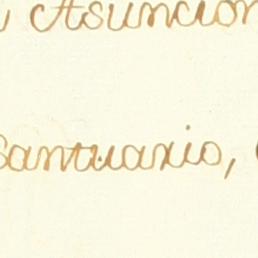 Asuncion
Santuario,